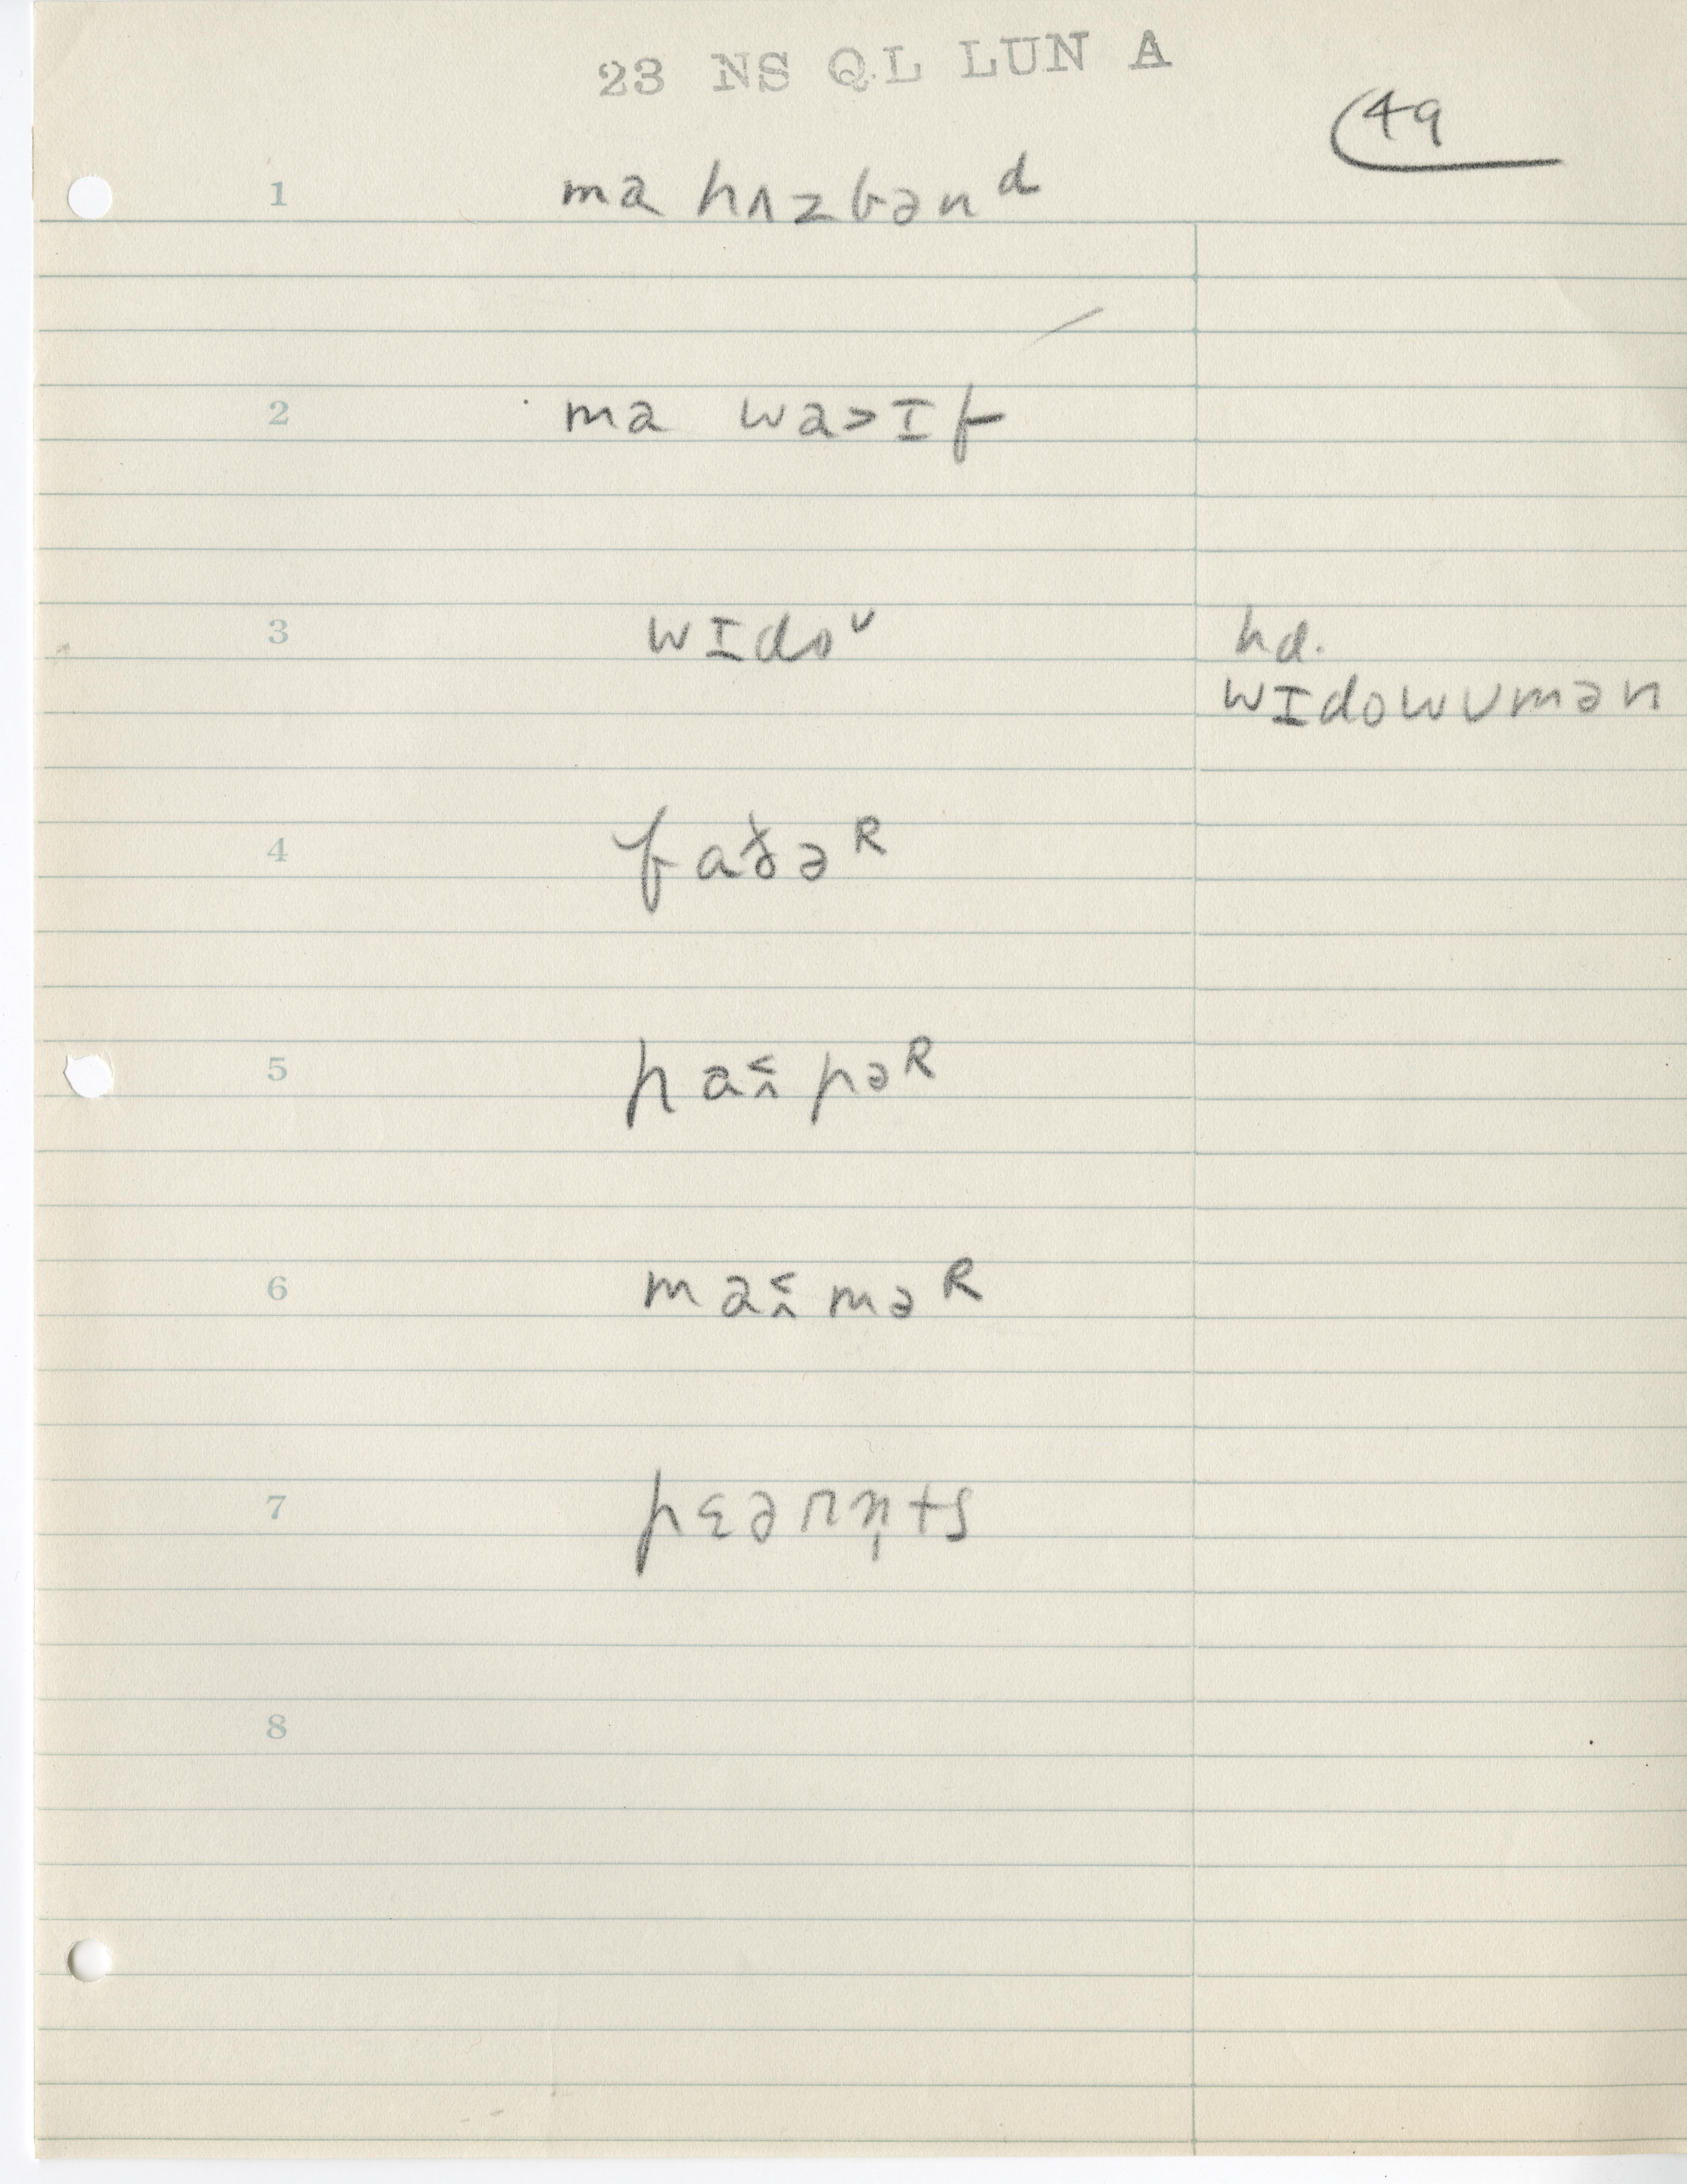 23 NS QL LUN A
49
1 ma hʌzbənᵈ
2 ma wa>ɪf
3 wɪdoᶷ hd.
wɪdowʊmən
4 fɑðəᴿ
5 pa pəᴿ
6 ma məᴿ
7
8